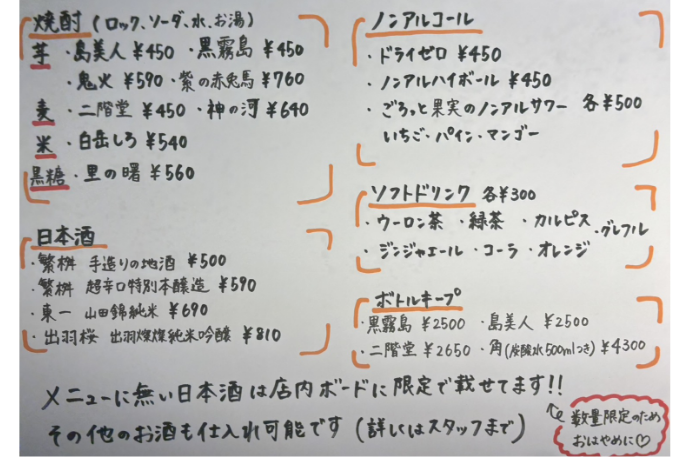 焼酎 (ロック、ソーダ、水、お湯)
芋 ・島美人 ¥450 ・黒霧島 ¥450
・鬼火 ¥590 ・紫の赤兎馬 ¥760
麦 ・二階堂 ¥450 ・神の河 ¥640
米 ・白岳しろ ¥540
黒糖 ・里の曙 ¥560
日本酒
・繁桝 手造りの地酒 ¥500
・繁桝 超辛口特別本醸造 ¥590
・東一 山田錦純米 ¥690
・出羽桜 出羽燦燦純米吟醸 ¥810
ノンアルコール
・ドライゼロ ¥450
・ノンアルハイボール ¥450
・ごろっと果実のノンアルサワー 各¥500
いちご・パイン・マンゴー
ソフトドリンク 各¥300
・ウーロン茶 ・緑茶 ・カルピス ・グレフル
・ジンジャエール ・コーラ ・オレンジ
ボトルキープ
・黒霧島 ¥2500 ・島美人 ¥2500
・二階堂 ¥2650 ・角(炭酸水500mlつき) ¥4300
メニューに無い日本酒は店内ボードに限定で載せてます!!
その他のお酒も仕入れ可能です (詳しくはスタッフまで)
数量限定のため
おはやめに♡